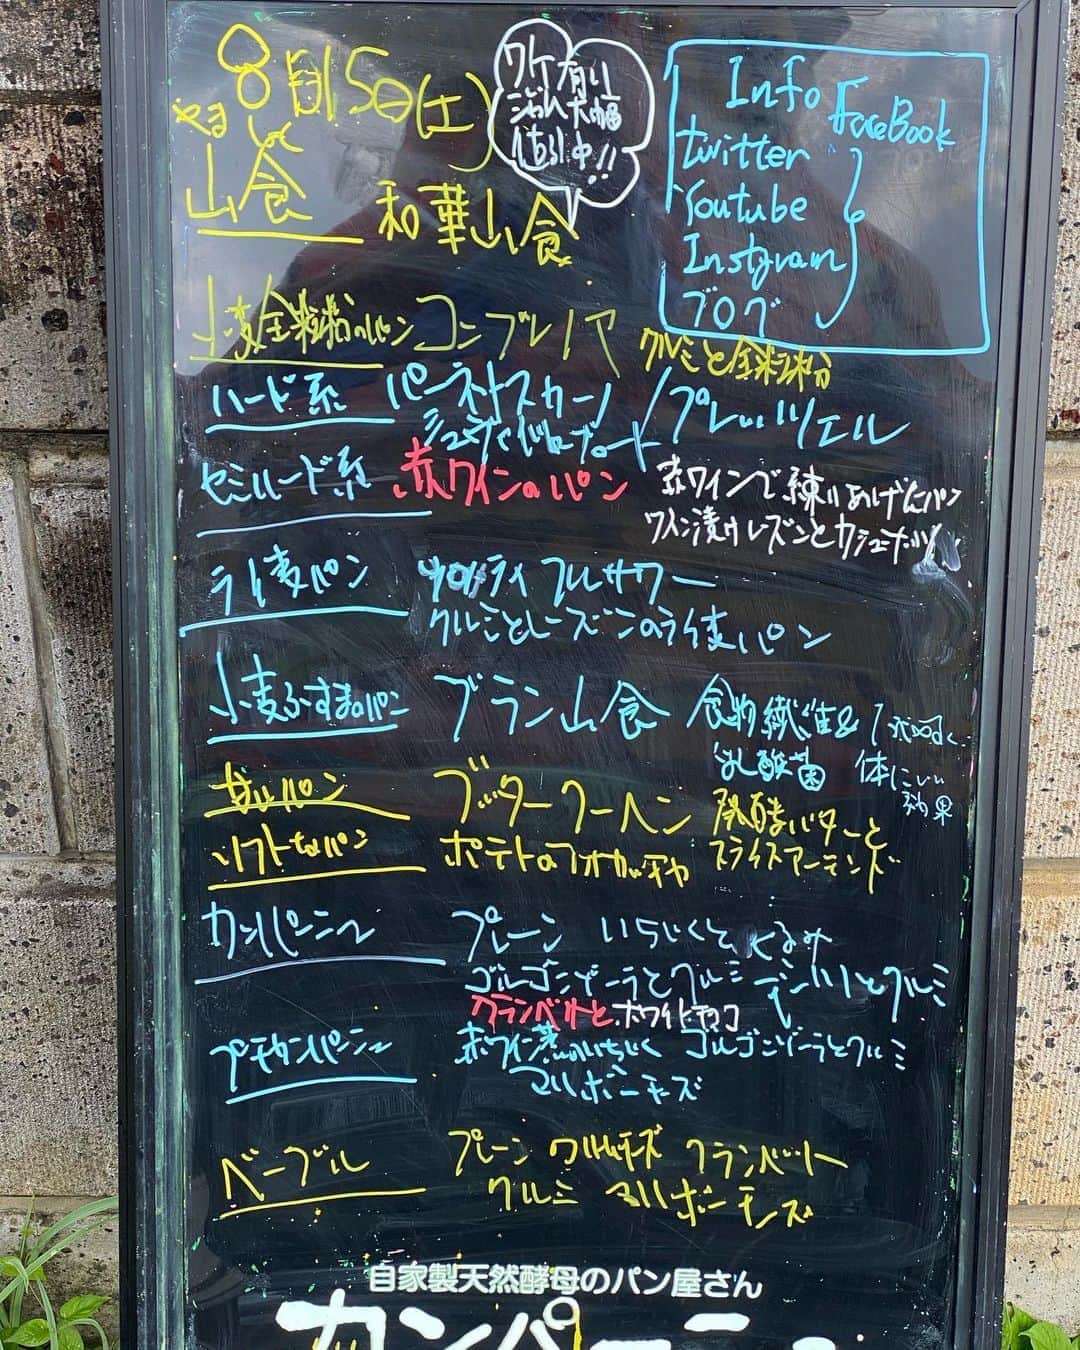 8月15日(土)
ワケ有り
大幅
値引中!!
Info
FaceBook
twitter
Youtube
Instgram
ブログ
山食 和華山食
小麦全粒粉のパン コンプレノア クルミと全粒粉
ハード系 パーネトスカーノ / プレッツェル
セミハード系 赤ワインのパン 赤ワインで練りあげたパン
ワイン漬けレーズンとカシューナッツ
ライ麦パン ライフルサワー
クルミとレーズンのライ麦パン
小麦ふすまのパン ブラン山食 食物繊維&
乳酸菌 体にいい
効果
甘いパン ブッタークーヘン 発酵バターと
スライスアーモンド
ソフトなパン ポテトのフォカッチャ
カンパーニュ プレーン いちじくとくるみ
ゴルゴンゾーラとクルミ デーツとクルミ
クランベリーと ホワイトチョコ
プチカンパーニュ 赤ワイン煮のいちじく ゴルゴンゾーラとクルミ
マルボーチーズ
ベーグル プレーン クルミチーズ クランベリー
クルミ マルボーチーズ
自家製天然酵母のパン屋さん
カンパーニュ